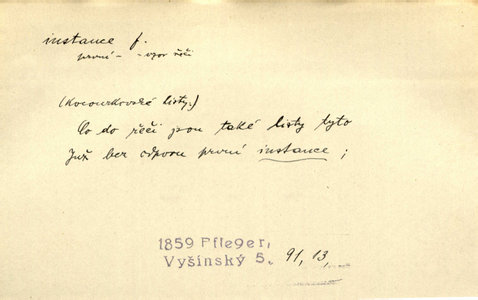 instance f.
první - - vzor řeči
(Kocourkovské listy.)
Co do řeči jsou také listy tyto
již bez odporu první instance;
1859 Pfleger,
Vyšínský 5. 91, 13,